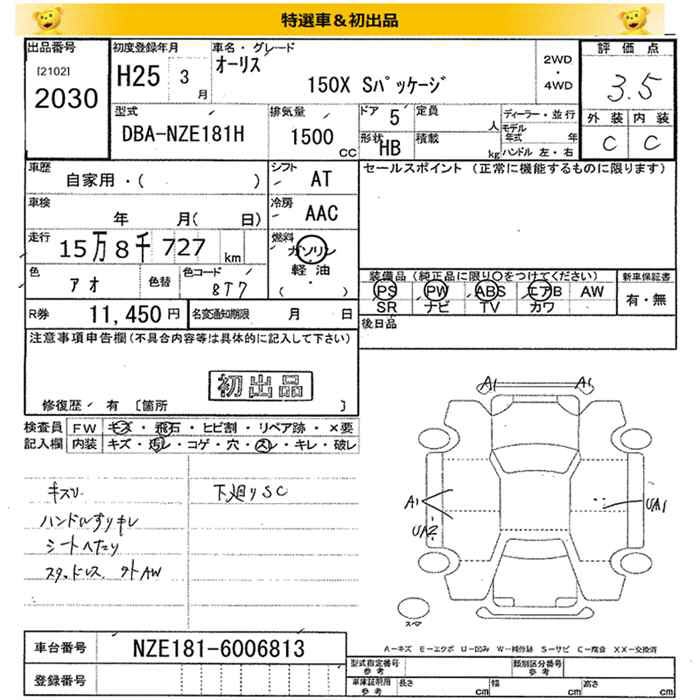 特選車&初出品
出品番号
[2102]
2030
初度登録年月
H25 3 月
車名・グレード
オーリス
150X Sパッケージ
2WD
・
4WD
評価点
3.5
外装 内装
C C
型式
DBA-NZE181H
排気量
1500 CC
ドア 5
形状 HB
定員 人
積載 kg
ディーラー・並行
モデル年式 年
ハンドル 左・右
車歴
自家用・( )
シフト AT
車検
年 月( 日)
冷房 AAC
走行
15万8千727 km
燃料
ガソリン
軽油
( ・ )
色
アオ
色替
色コード
8T7
セールスポイント (正常に機能するものに限ります)
装備品 (純正品に限り○をつけてください)
PS PW ABS エアB AW
SR ナビ TV カワ
新車保証書
有・無
後日品
R券 11,450 円
名変通知期限 月 日
注意事項申告欄(不具合内容等は具体的に記入して下さい)
初出品
修復歴・有 [箇所 ]
検査員記入欄
FW キズ・飛石・ヒビ割・リペア跡・×要
内装 キズ・汚レ・コゲ・穴・スレ・キレ・破レ
キスリ
ハンドルすりキレ
シートへたり
スタッドレス 外AW
下廻りSC
A1 A1
A1
UA2
UA1
スペア
A-キズ E-エクボ U-凹み W-補修跡 S-サビ C-腐食 XX-交換済
車台番号 NZE181-6006813
登録番号
型式指定番号 参考
類別区分番号 参考
車庫証明用 参考
長さ cm 幅 cm 高さ cm